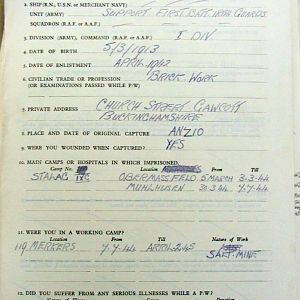 2. SHIP (R.N., U.S.N. or MERCHANT NAVY)
UNIT (ARMY) SUPPORT FIRST BAT IRISH GUARDS
SQUADRON (R.A.F. or A.A.F.)
3. DIVISION (ARMY), COMMAND (R.A.F. or A.A.F.) I DIV
4. DATE OF BIRTH 5/3/1913
5. DATE OF ENLISTMENT APRIL 1942
6. CIVILIAN TRADE OR PROFESSION BRICK WORK
(OR EXAMINATIONS PASSED WHILE P/W)
7. PRIVATE ADDRESS CHURCH STREET GAWCOTT
BUCKINGHAMSHIRE
8. PLACE AND DATE OF ORIGINAL CAPTURE ANZIO
9. WERE YOU WOUNDED WHEN CAPTURED? YES
10. MAIN CAMPS OR HOSPITALS IN WHICH IMPRISONED.
Camp No. Location From Till
STALAG IXC OBERMASSFELD 5 MARCH 3-3-44
MUHLHUSEN 30.3.44 7-7-44
11. WERE YOU IN A WORKING CAMP?
Location From Till Nature of Work
119 MERKERS 7.7.44 APRIL-2-45 SALT-MINE
12. DID YOU SUFFER FROM ANY SERIOUS ILLNESSES WHILE A P/W?